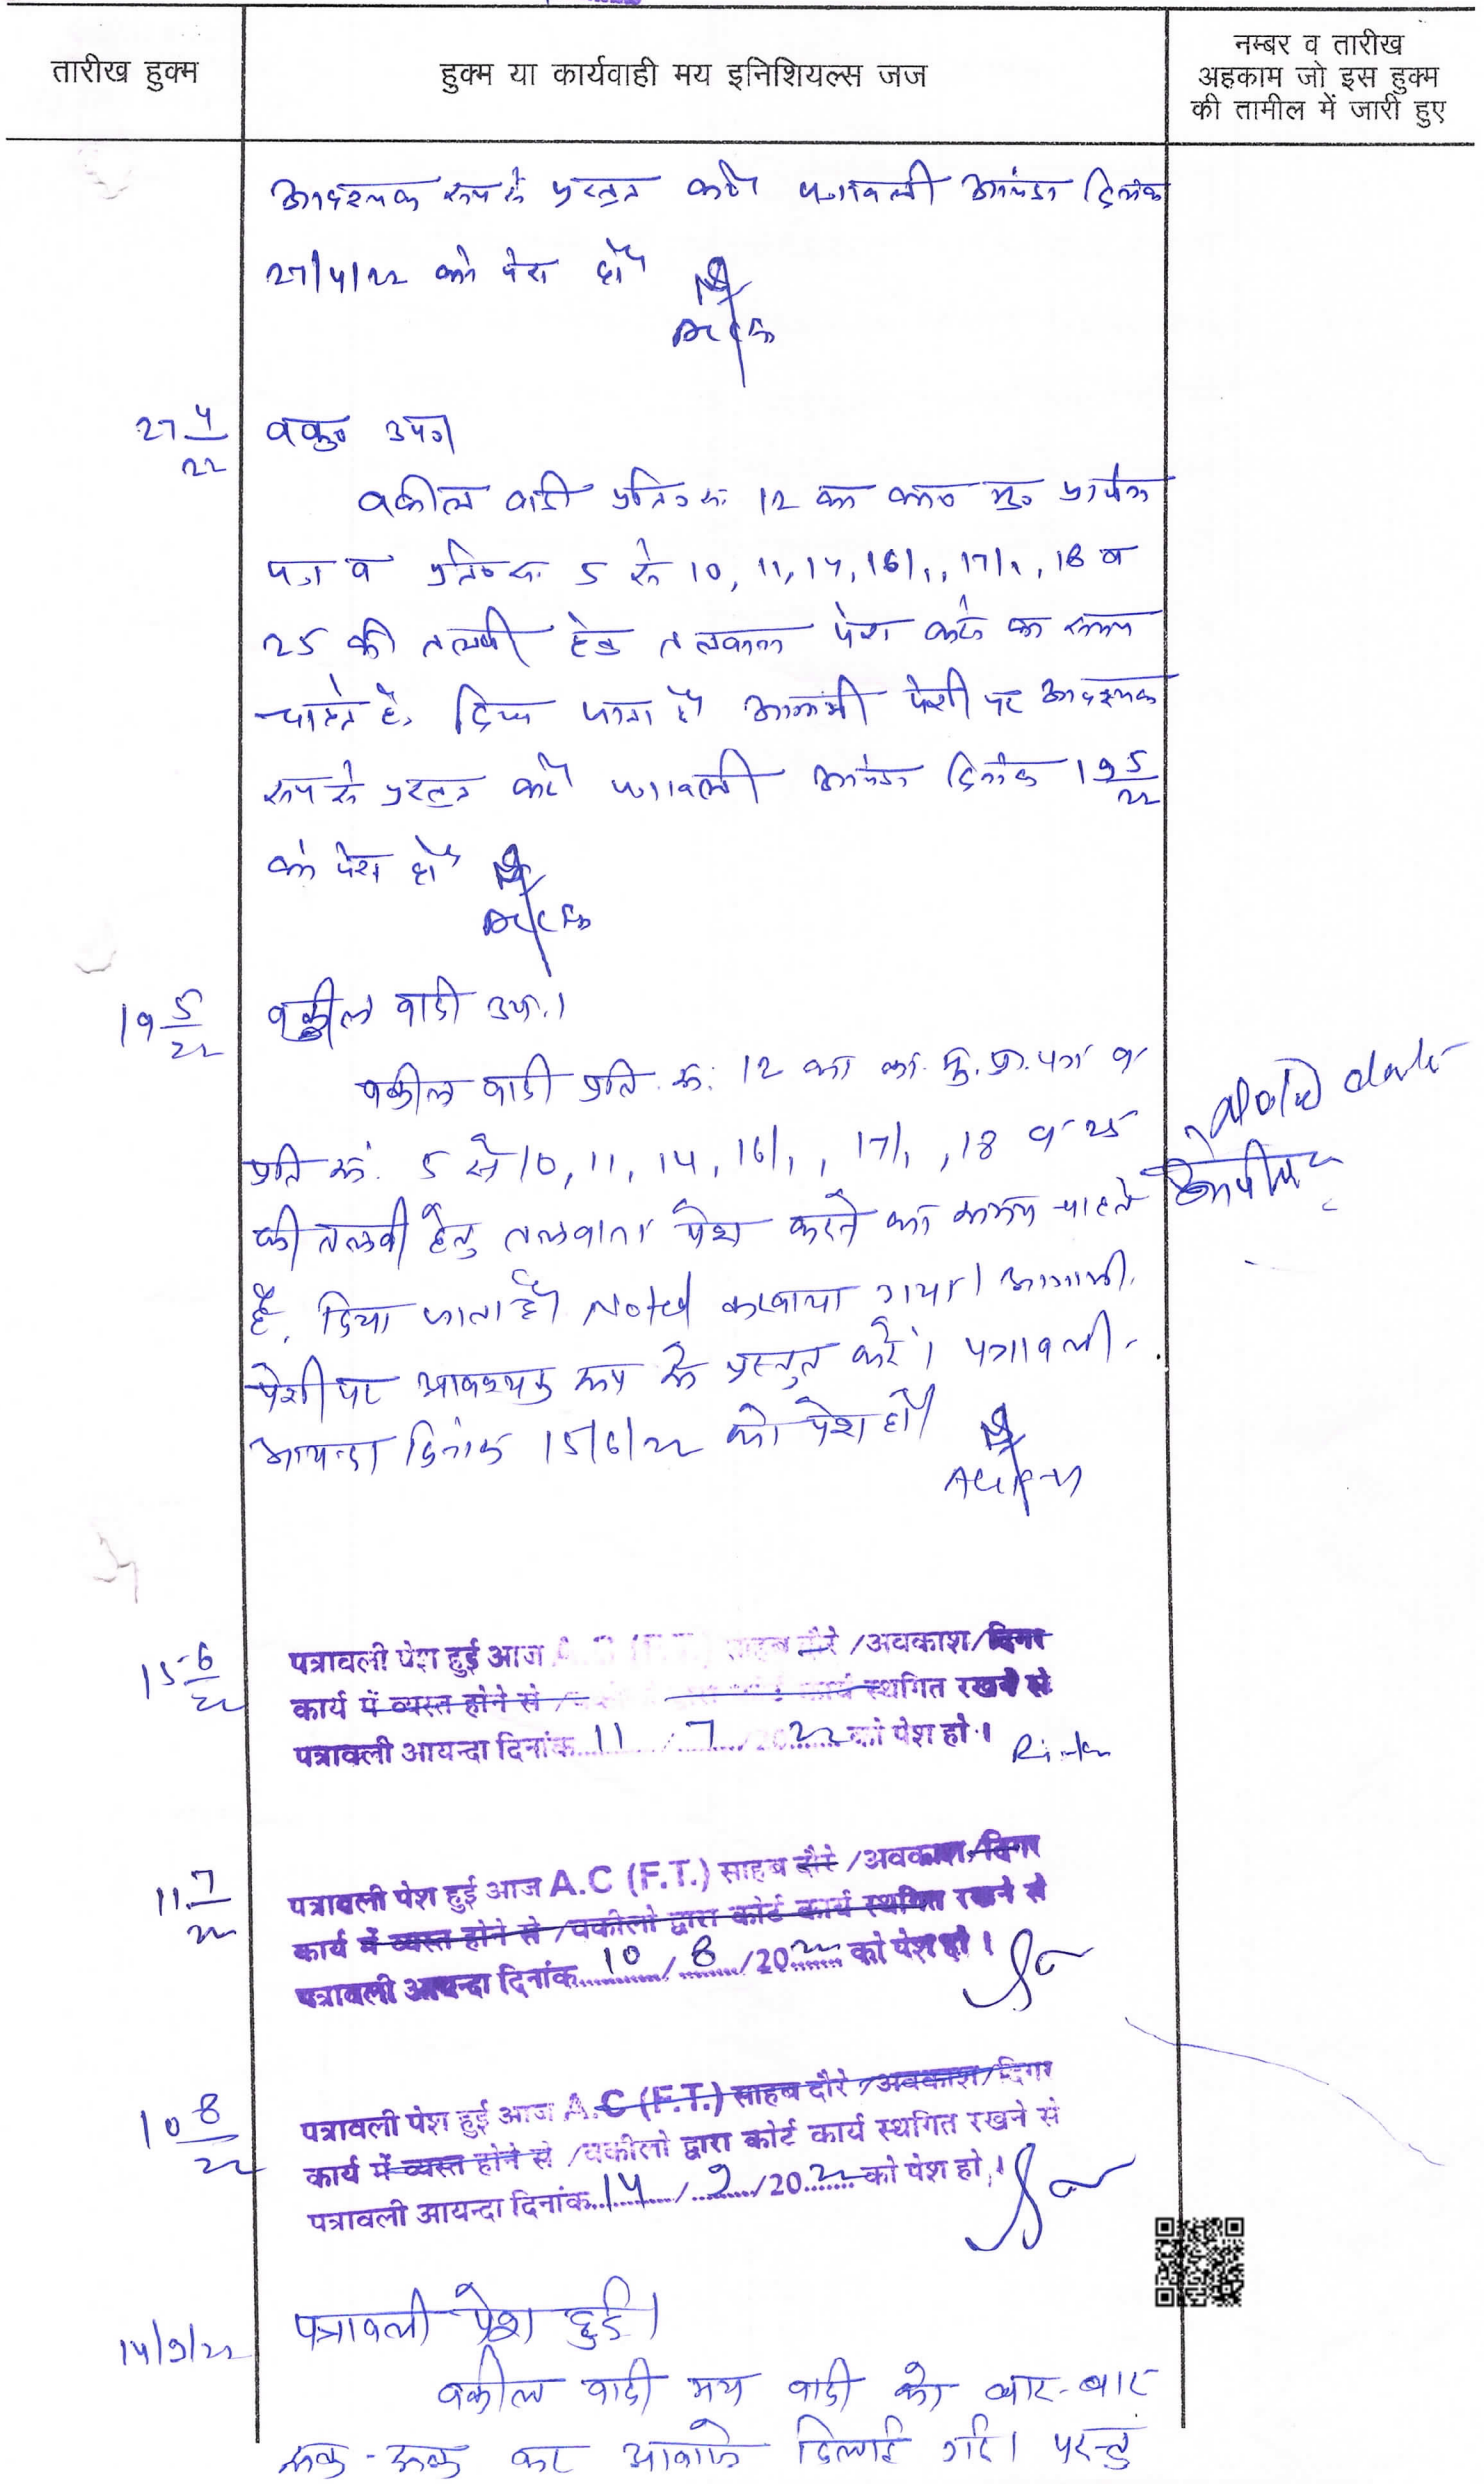 तारीख हुक्म
हुक्म या कार्यवाही मय इनिशियल्स जज
नम्बर व तारीख
अहकाम जो इस हुक्म
की तामील में जारी हुए
आवश्यक रूप से प्रस्तुत करें। पत्रावली आयंदा दिनांक
27/4/22 को पेश हो।
27 4/22
वकु० उप०।
वकील वादी प्रति० क्र. 12 का का० मु० प्रार्थना
पत्र व प्रति० क्र. 5 से 10, 11, 14, 16/1, 17/1, 18 व
25 की तलबी हेतु तलवाना पेश करने का समय
चाहते है, दिया जाता है। आगामी पेशी पर आवश्यक
रूप से प्रस्तुत करें। पत्रावली आयंदा दिनांक 19 5/22
को पेश हो।
19 5/22
वकील वादी उप.।
वकील वादी प्रति. क्र. 12 का का. मु. प्रा. पत्र व
प्रति क्रं. 5 से 10, 11, 14, 16/1, 17/1, 18 व 25
की तलबी हेतु तलवाना पेश करने का समय चाहते
है, दिया जाता है। Noted करवाया गया। आगामी
पेशी पर आवश्यक रूप से प्रस्तुत करें। पत्रावली
आयन्दा दिनांक 15/6/22 को पेश हो।
Noted date
15 6/22
पत्रावली पेश हुई आज साहब दौरे /अवकाश/दिगर
कार्य में व्यस्त होने से / कार्य स्थगित रखने से
पत्रावली आयन्दा दिनांक 11 / 7 / 2022 को पेश हो।
11 7/22
पत्रावली पेश हुई आज A.C (F.T.) साहब दौरे /अवकाश/दिगर
कार्य में व्यस्त होने से /वकीलो द्वारा कोर्ट कार्य स्थगित रखने से
पत्रावली आयन्दा दिनांक 10 / 8 /2022 को पेश हो।
10 8/22
पत्रावली पेश हुई आज A.C (F.T.) साहब दौरे /अवकाश/दिगर
कार्य में व्यस्त होने से /वकीलो द्वारा कोर्ट कार्य स्थगित रखने से
पत्रावली आयन्दा दिनांक 14 / 9 /2022 को पेश हो।
14/9/22
पत्रावली पेश हुई।
वकील वादी मय वादी को बार-बार
रूक-रूक कर आवाजे दिलाई गई। परन्तु